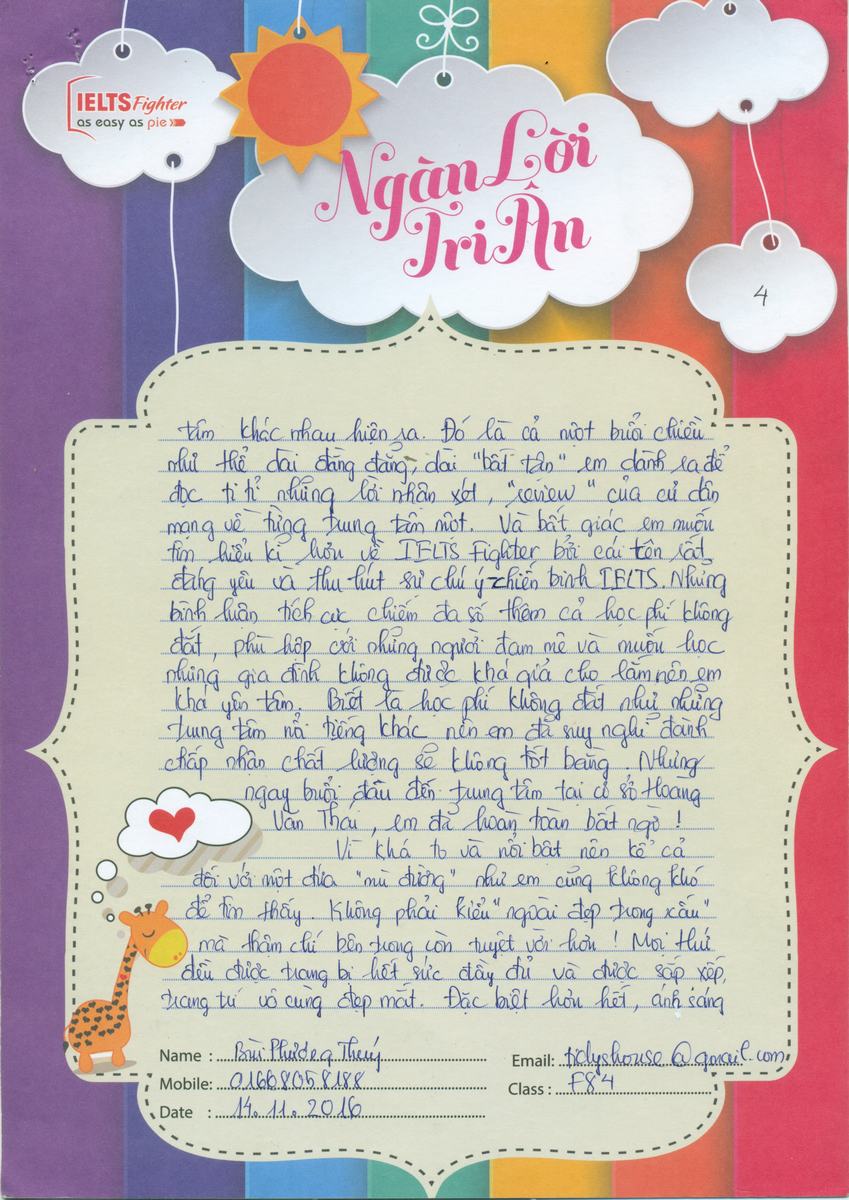 IELTS Fighter
as easy as pie
Ngàn Lời
Tri Ân
4
tâm khác nhau hiện ra. Đó là cả một buổi chiều
như thể dài đằng đẵng, dài "bất tận" em dành ra để
đọc tỉ tỉ những lời nhận xét, "review" của cư dân
mạng về từng trung tâm một. Và bất giác em muốn
tìm hiểu kĩ hơn về IELTS Fighter bởi cái tên rất
đáng yêu và thu hút sự chú ý - chiến binh IELTS. Những
bình luận tích cực chiếm đa số thêm cả học phí không
đắt, phù hợp với những người đam mê và muốn học
nhưng gia đình không được khá giả cho lắm nên em
khá yên tâm. Biết là học phí không đắt như những
trung tâm nổi tiếng khác nên em đã suy nghĩ đành
chấp nhận chất lượng sẽ không tốt bằng. Nhưng
ngay buổi đầu đến trung tâm tại cơ sở Hoàng
Văn Thái, em đã hoàn toàn bất ngờ !
Vì khá to và nổi bật nên kể cả
đối với một đứa "mù đường" như em cũng không khó
để tìm thấy. Không phải kiểu "ngoài đẹp trong xấu"
mà thậm chí bên trong còn tuyệt vời hơn ! Mọi thứ
đều được trang bị hết sức đầy đủ và được sắp xếp,
trang trí vô cùng đẹp mắt. Đặc biệt hơn hết, ánh sáng
Name : Bùi Phương Thuý
Email: tidyshouse@gmail.com
Mobile: 01668058188
Class : F84
Date : 14.11.2016